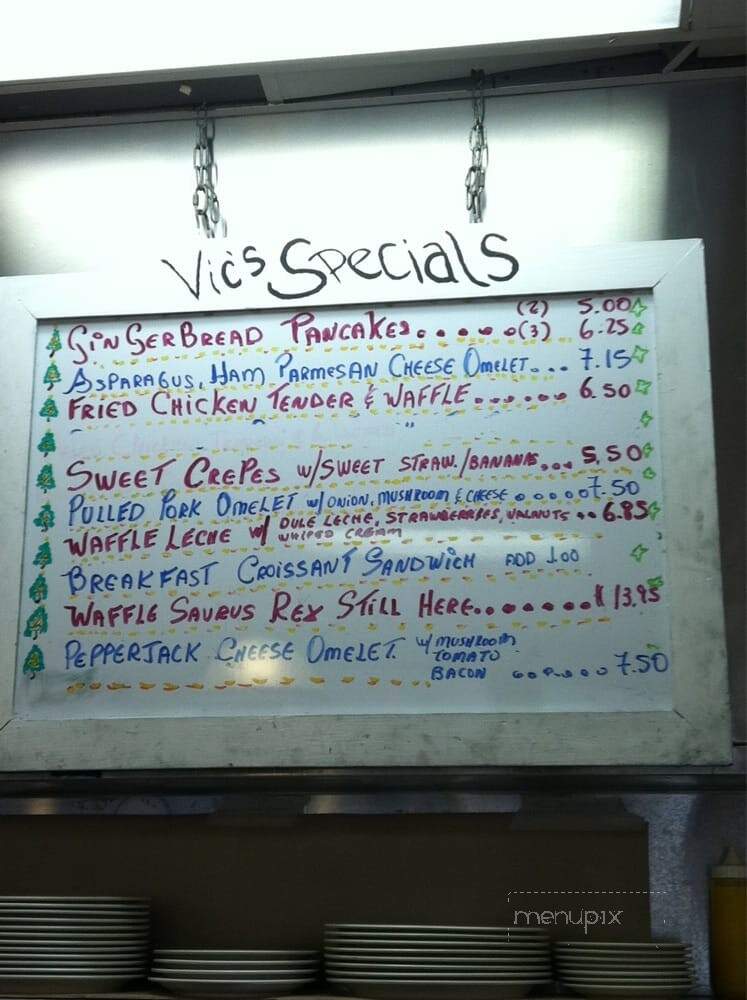 Vic's Specials
GinGerBread Pancakes..... (2) 5.00
(3) 6.25
Asparagus, Ham Parmesan Cheese Omelet... 7.15
Fried Chicken Tender & Waffle...... 6.50
Sweet Crepes w/sweet straw./bananas... 5.50
Pulled Pork Omelet w/onion, mushroom & cheese ..... 7.50
Waffle Leche w/ Dule Leche, Strawberries, Walnuts .. 6.85
whiped cream
Breakfast Croissant Sandwich add 1.00
Waffle Saurus Rex Still Here....... $ 13.95
Pepperjack Cheese Omelet. w/ mushroom
Tomato
Bacon ...... 7.50
menupix